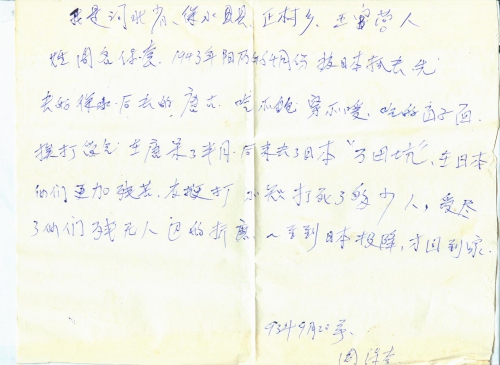 我是河北省、徐水县、正村乡、王家营人
姓周名保京. 1943年阳历4月份被日本抓去先
去的徐水. 后去的唐大. 吃不饱 穿不暖. 吃的面.
挨打 在唐呆了半月. 后来去了日本"万田坑". 在日本
他们更加残. 挨打 不知打死了多少人, 受尽
了他们残无人道的折磨. 一直到日本投降, 才回到家.
93年9月22
周保